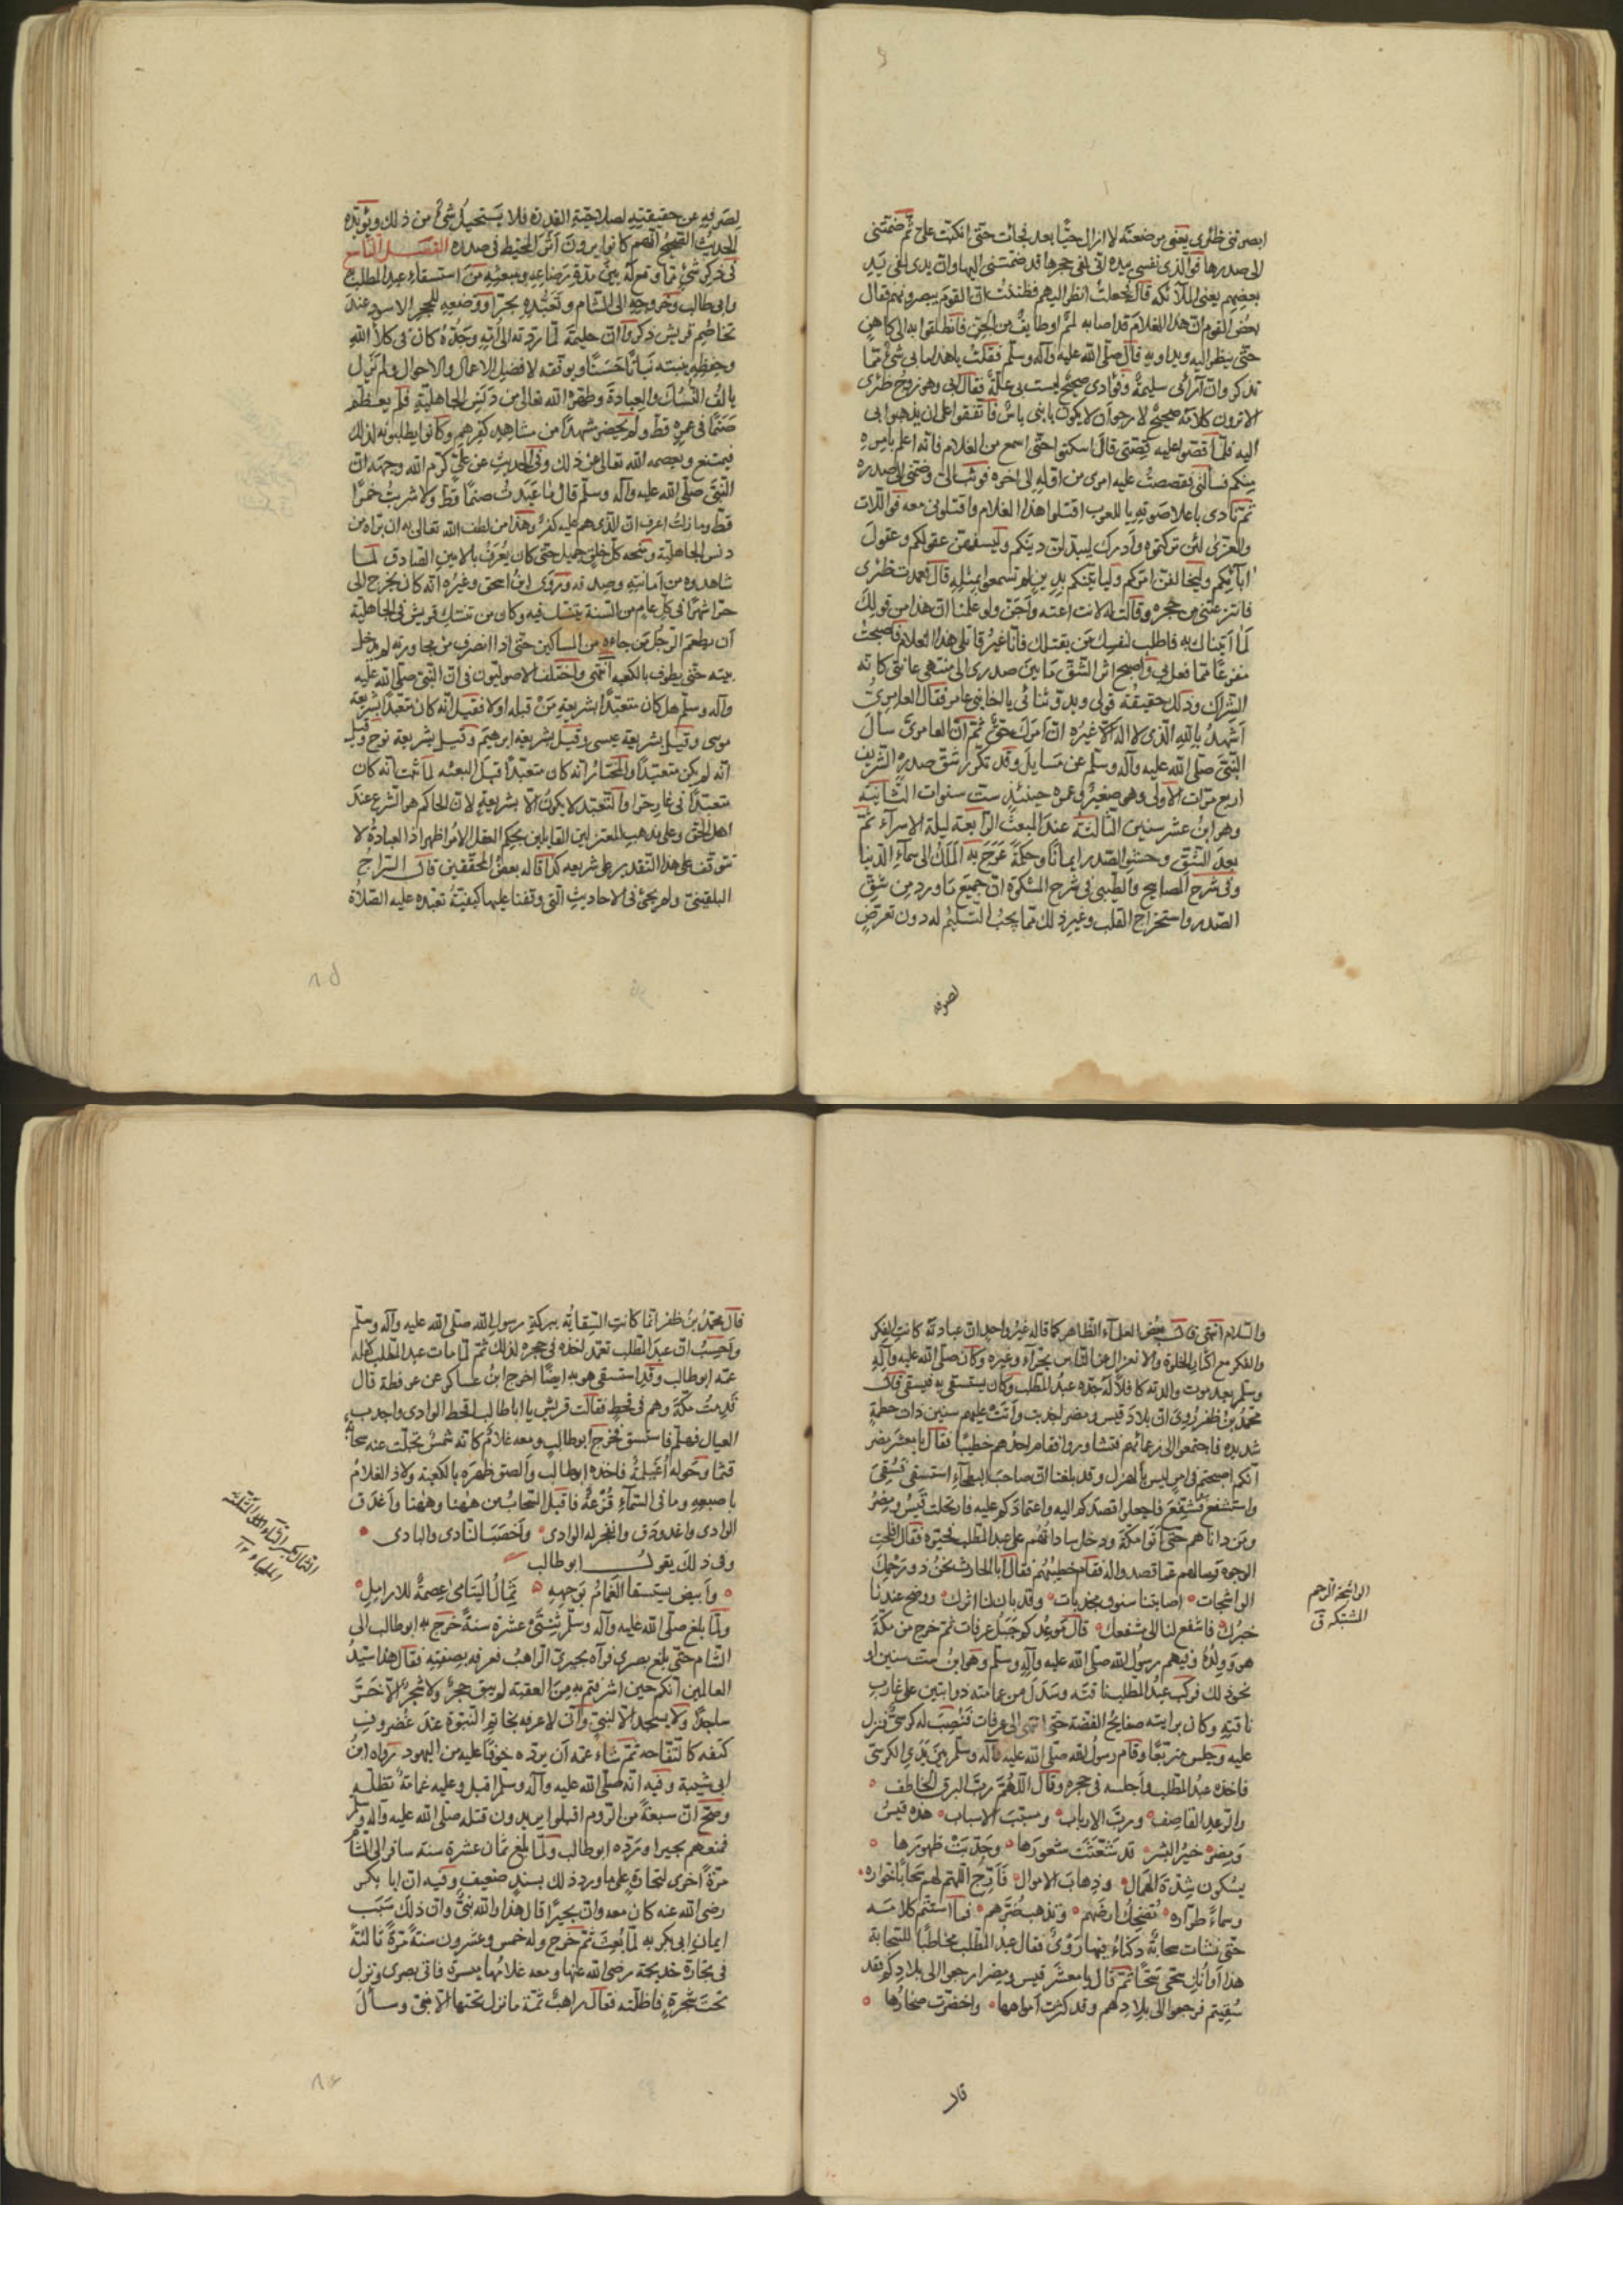 ابصرتني ظئري يعني مرضعته لا ازال حيّا بعد فجاءت حتى انكبت علي ثم ضمتني
الى صدرها فوالذي نفسي بيده اني لفي حجرها قد ضمتني اليها وان يدي لفي يد
بعضهم يعني الملائكة قال فجعلت انظر اليهم فظننت ان القوم يبصرونهم فقال
بعض القوم ان هذا الغلام قد اصابه لمم او طايف من الجن فانطلقوا به الى كاهن
حتى ينظر اليه ويداويه قال صلى الله عليه وآله وسلم فقلت يا هذا ما بي شيء مما
تذكر وان آرائي سليمة وفؤادي صحيح ليست بي علة فقال ابي وهو زوج ظئري
الا ترون كلامه صحيح لارجو ان لا يكون بابني باس فاتفقوا على ان يذهبوا بي
اليه فلما قصوا عليه قصتي قال اسكتوا حتى اسمع من الغلام فانه اعلم بامره
منكم فسألني فقصصت عليه امري من اوله الى اخره فوثب الي وضمني الى صدره
ثم نادى باعلا صوته يا للعرب اقتلوا هذا الغلام واقتلوني معه فو اللات
والعزى لئن تركتموه وادرك ليبدلن دينكم وليسفهن عقولكم وعقول
ابائكم وليخالفن امركم ولياتينكم بدين لم تسمعوا بمثله قال فعمدت ظئري
فانتزعتني من حجره وقالت له لانت اعته واجن ولو علمنا ان هذا من قولك
لما اتيناك به فاطلب لنفسك من يقتلك فانا غير قاتلي هذا الغلام فاصبحت
مفزعا مما فعل بي واصبح اثر الشق ما بين صدري الى منتهى عانتي كانه
الشراك وذلك حقيقة قولي وبدو شاني يا اخا بني عامر فقال العامري
اشهد بالله الذي لا اله غيره ان امرك حق ثم ان العامري سأل
النبي صلى الله عليه وآله وسلم عن مسايل وقد تكرر شق صدره الشريف
اربع مرات الاولى وهو صغير وعمره حينئذ ست سنوات الثانية
وهو ابن عشر سنين الثالثة عند البعث الرابعة ليلة الاسراء ثم
بعد الشق وحشو الصدر ايمانا وحكمة عرج به الملك الى سماء الدنيا
وفي شرح المصابيح والطيبي في شرح المشكوة ان جميع ما ورد من شق
الصدر واستخراج القلب وغير ذلك مما يجب التسليم له دون تعرض
لصرفه
لصرفه عن حقيقته لصلاحية القدرة فلا يستحيل شيء من ذلك ويؤيده
الحديث الصحيح انهم كانوا يرون اثر المخيط في صدره الفصل التاسع
في ذكر شيء مما وقع له بين مدة رضاعه وبعثه من استسقاء عبد المطلب به
وابي طالب وخروجه الى الشام وتعبده بحرا ووضعه للحجر الاسود عند
تخاصم قريش ذكروا ان حليمة لما ردته الى امه وجده كان في كلاء الله
وحفظه ينبته نباتا حسنا ويوفقه لافضل الاعمال والاحوال ولم يزل
يالف النسك والعبادة وطهره الله تعالى من دنس الجاهلية فلم يعظم
صنما في عمره قط ولم يحضر مشهدا من مشاهد كفرهم وكانوا يطلبونه لذلك
فيمتنع ويعصمه الله تعالى عن ذلك وفي الحديث عن علي كرم الله وجهه ان
النبي صلى الله عليه وآله وسلم قال ما عبدت صنما قط ولا شربت خمرا
قط وما زلت اعرف ان الذي هم عليه كفر وهذا من لطف الله تعالى به ان براه من
دنس الجاهلية ومنحه كل خلق جميل حتى كان يعرف بالامين الصادق لما
شاهدوه من امانته وصدقه وروى ابن اسحق وغيره انه كان يخرج الى
حرا شهرا في كل عام من السنة يتنسك فيه وكان من تنسك قريش في الجاهلية
ان يطعم الرجل من جاءه من المساكين حتى اذا انصرف من مجاورته لم يدخل
بيته حتى يطوف بالكعبه انتهى واختلف الاصوليون في ان النبي صلى الله عليه
وآله وسلم هل كان متعبدا بشريعة من قبله او لا فقيل انه كان متعبدا بشريعة
موسى وقيل بشريعة عيسى وقيل بشريعة ابرهيم وقيل بشريعة نوح وقيل
انه لم يكن متعبدا والمختار انه كان متعبدا قبل البعثه لما ثبت انه كان
متعبدا في غار حرا والتعبد لا يكون الا بشريعة لان الحاكم هو الشرع عند
اهل الحق وعلى مذهب المعتزلين القايلين بحكم العقل الامر اظهر اذ العبادة لا
تتوقف على هذا التقدير على شريعه كذا قاله بعض المحققين قال السراج
البلقيني ولم يجئ في الاحاديث التي وقفنا عليها كيفية تعبده عليه الصلاة
والسلام انتهى قال بعض العلماء الظاهر كما قاله غير واحد ان عبادته كانت الذكر
والفكر مع اكثار الخلوة والانعزال عن الناس بحراء وغيره وكان صلى الله عليه وآله
وسلم بعد موت والدته كافلا له جده عبد المطلب وكان يستسقي به فيسقى قال
محمد بن ظفر روي ان بلاد قيس ومضر اجدبت واتت عليهم سنين ذات حطمة
شديده فاجتمعوا الى زعمائهم فتشاوروا فقام احدهم خطيبا فقال يا معشر مضر
انكم اصبحتم في امر ليس بالهزل وقد بلغنا ان صاحب البطحاء استسقى فسقي
واستشفع فشفع فاجعلوا قصدكم اليه واعتمادكم عليه فارتحلت قيس ومضر
ومن داناهم حتى اتوا مكة ودخل ساداتهم على عبد المطلب فحيوه فقال افلحت
الوجوه وسالهم عما قصدوا له فقام خطيبهم فقال ابا الحارث نحن ذو رحمك
الواشجات اصابتنا سنون مجدبات وقد بان لنا اثرك ووضح عندنا
خبرك فاشفع لنا الى شفعك قال موعدكم جبل عرفات ثم خرج من مكة
هو وولده وفيهم رسول الله صلى الله عليه وآله وسلم وهو ابن ست سنين او
نحو ذلك فركب عبد المطلب ناقته وسدل من عمامته ذوابتين على غارب
ناقته وكان برايته صفايح الفضة حتى انتهى الى عرفات فنصب له كرسي فنزل
عليه وجلس متربعا وقام رسول الله صلى الله عليه وآله وسلم بين يدي الكرسي
فاخذه عبد المطلب واجلسه في حجره وقال اللهم رب البرق الخاطف
والرعد القاصف ورب الارباب ومسبب الاسباب هذه قيس
ومضر خير البشر قد شعثت شعورها وحدبت ظهورها
يشكون شدة الهزال وذهاب الاموال فاتح اللهم لهم سحابا خواره
وسماء طراره تضحك ارضهم وتذهب ضرهم فما استتم كلامه
حتى نشات سحابة دكناء فيها دوي فقال عبد المطلب مخاطبا للسحابة
هذا اوانك سحي سحا ثم قال يا معشر قيس ومضر ارجعوا الى بلادكم فقد
سقيتم فرجعوا الى بلادهم وقد كثرت امواهها واخضرت صحارها
الواشجة الرحم
المشتبكة
قال
قال محمد بن ظفر انما كانت السقاية ببركة رسول الله صلى الله عليه وآله وسلم
واحسب ان عبد المطلب تعمد اخذه في حجره لذلك ثم لما مات عبد المطلب كفله
عمه ابو طالب وقد استسقى هو به ايضا اخرج ابن عساكر عن عرفطة قال
قدمت مكة وهم في قحط فقالت قريش يا ابا طالب اقحط الوادي واجدب
العيال فهلم فاستسق فخرج ابو طالب ومعه غلام كانه شمس تجلت عنه سحابة
قتما وحوله اغيلمة فاخذه ابو طالب والصق ظهره بالكعبه ولاذ الغلام
باصبعه وما في السماء قزعة فاقبل السحاب من ههنا وههنا واغدق
الوادي واغدودق وانفجر له الوادي واخصب النادي والبادي
وفي ذلك يقول ابو طالب
وابيض يستسقا الغمام بوجهه ثمال اليتامى عصمة للارامل
ولما بلغ صلى الله عليه وآله وسلم ثنتى عشرة سنة خرج به ابو طالب الى
الشام حتى بلغ بصرى فرآه بحيرى الراهب فعرفه بصفته فقال هذا سيد
العالمين انكم حين اشرفتم به من العقبه لم يبق حجر ولا شجر الا خر
ساجدا ولا يسجد الا لنبي واني لاعرفه بخاتم النبوة عند غضروف
كتفه كالتفاحه ثم شاء عمه ان يرده خوفا عليه من اليهود رواه ابن
ابي شيبة وفيه انه صلى الله عليه وآله وسلم اقبل وعليه غمامة تظله
وصح ان سبعة من الروم اقبلوا يريدون قتله صلى الله عليه وآله وسلم
فمنعهم بحيرا ورده ابو طالب ولما بلغ ثمان عشرة سنة سافر الى الشام
مرة اخرى لتجارة على ما ورد ذلك بسند ضعيف وفيه ان ابا بكر
رضي الله عنه كان معه وان بحيرا قال هذا والله نبي وان ذلك سبب
ايمان ابي بكر به لما بعث ثم خرج وله خمس وعشرون سنة مرة ثالثة
في تجارة خديجة رضي الله عنها ومعه غلامها ميسرة فاتى بصرى ونزل
تحت شجرة فاظلته فقال راهب ثمة ما نزل تحتها الا نبي وسأل
الثمال بكسر الثاء المثلثة
الملجاء ١٢